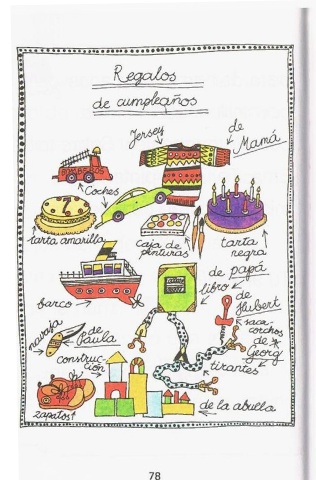 Regalos
de cumpleaños
Jersey
de
Mamá
Coches
7
tarta amarilla
caja de
pinturas
tarta
negra
de papá
libro
barco
de
Hubert
saca-
corchos
de
Georg
navaja
de
Paula
construc-
ción
tirantes
zapatos
de la abuela
78